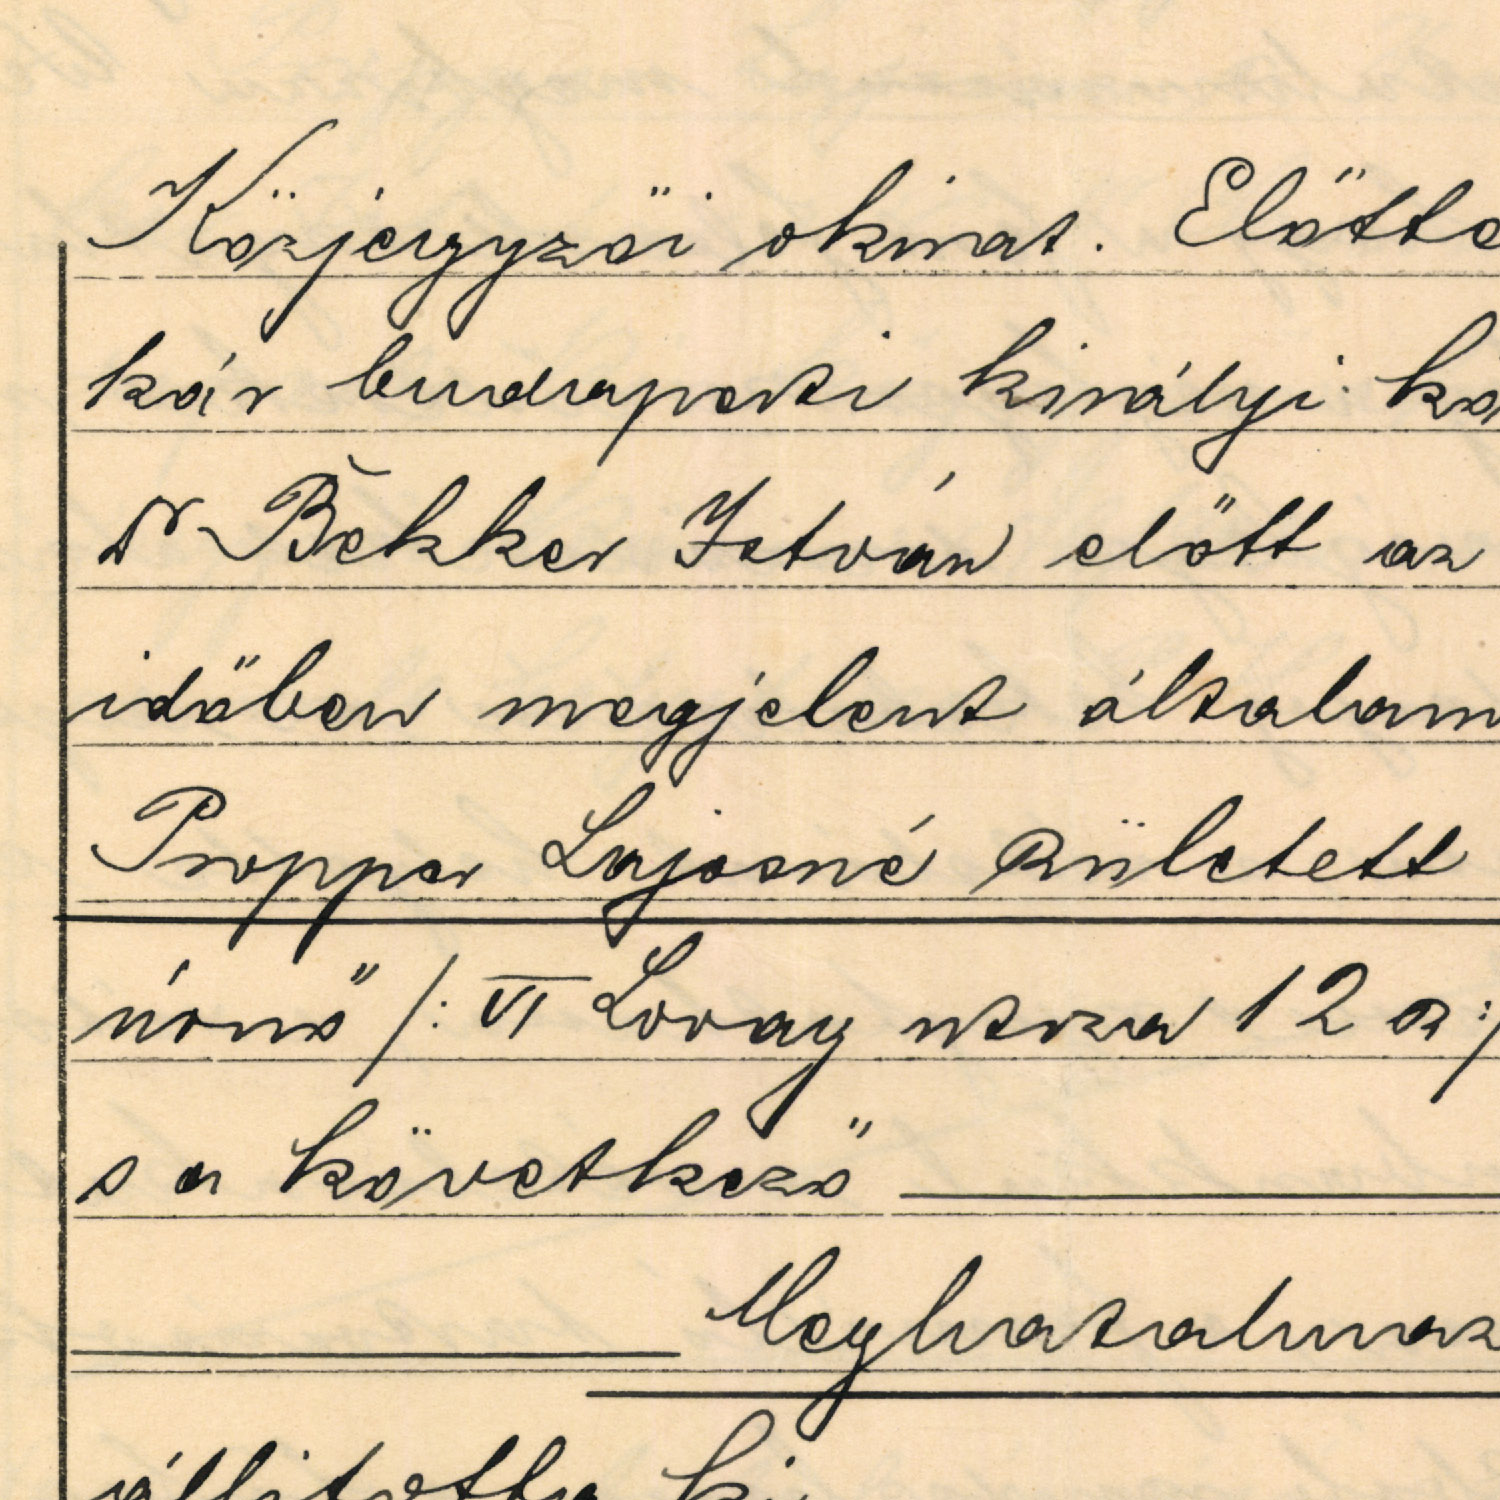 Közjegyzői okirat. Előtte
kár budapesti királyi kö
dr Bekker István előtt az
időben megjelent általam
Propper Lajosné született
úrnő /: VI Lovag utcza 12 sz :/
s a következő
Meghatalmaz
állította ki